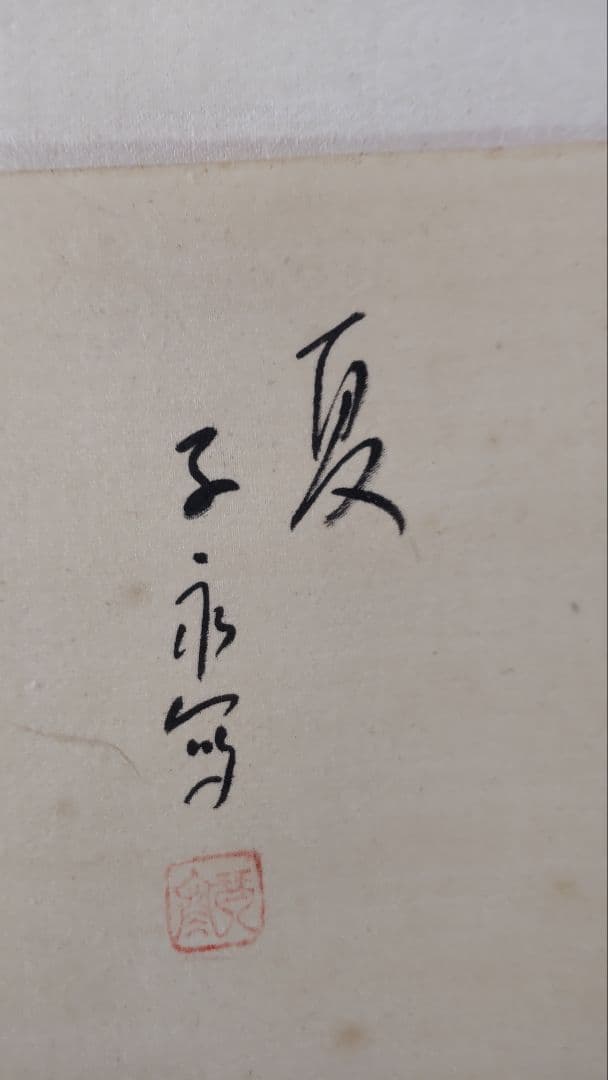 夏
子永寫